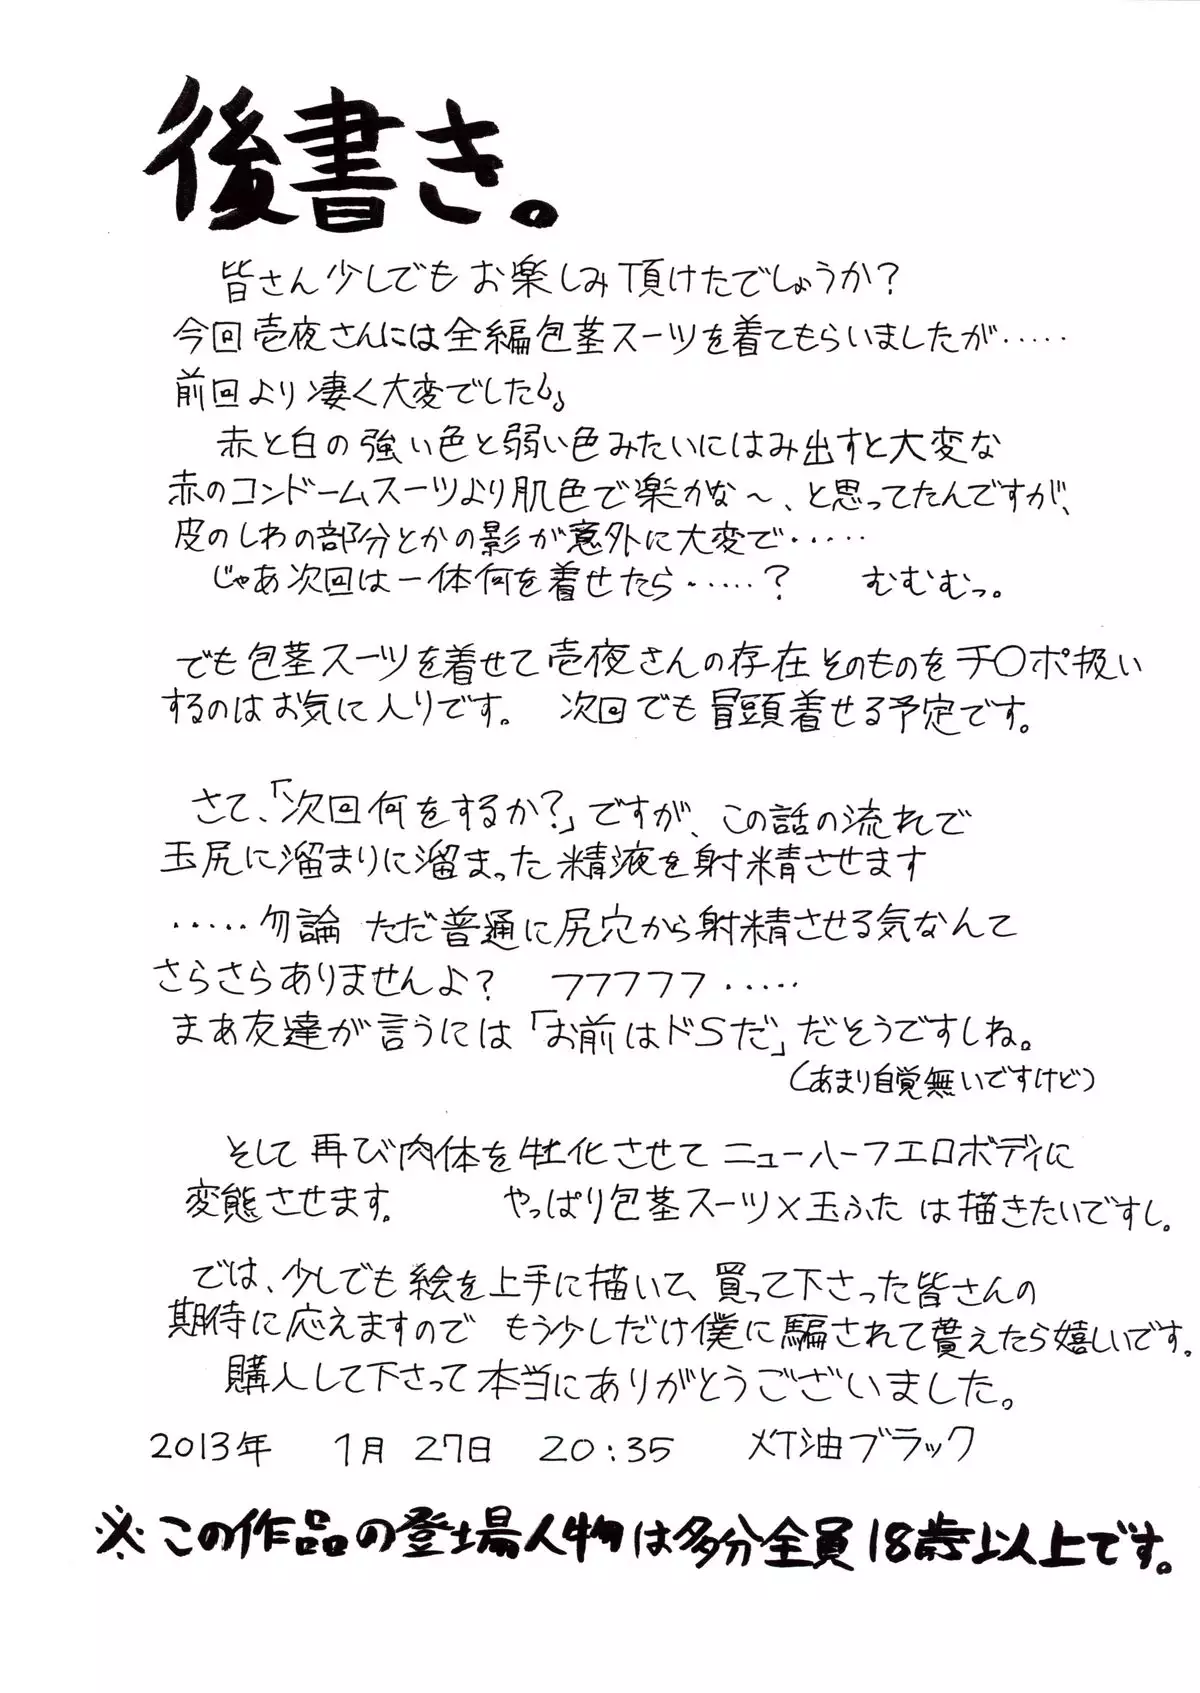 後書き。
皆さん少しでもお楽しみ頂けたでしょうか?
今回壱夜さんには全編包茎スーツを着てもらいましたが・・・・・
前回より凄く大変でした。
赤と白の強い色と弱い色みたいにはみ出すと大変な
赤のコンドームスーツより肌色で楽かな～、と思ってたんですが、
皮のしわの部分とかの影が意外に大変で・・・・・
じゃあ次回は一体何を着せたら・・・・・? むむむっ。
でも包茎スーツを着せて壱夜さんの存在そのものをチ〇ポ扱い
するのはお気に入りです。 次回でも冒頭着せる予定です。
さて、「次回何をするか?」ですが、この話の流れで
玉尻に溜まりに溜まった精液を射精させます
・・・・・勿論ただ普通に尻穴から射精させる気なんて
さらさらありませんよ? フフフフフ・・・・・
まあ友達が言うには「お前はドSだ」だそうですしね。
(あまり自覚無いですけど)
そして再び肉体を牡化させてニューハーフエロボディに
変態させます。 やっぱり包茎スーツ×玉ふたは描きたいですし。
では、少しでも絵を上手に描いて、買って下さった皆さんの
期待に応えますのでもう少しだけ僕に騙されて貰えたら嬉しいです。
購入して下さって本当にありがとうございました。
2013年 1月27日 20:35 油ブラック
※この作品の登場人物は多分全員18歳以上です。